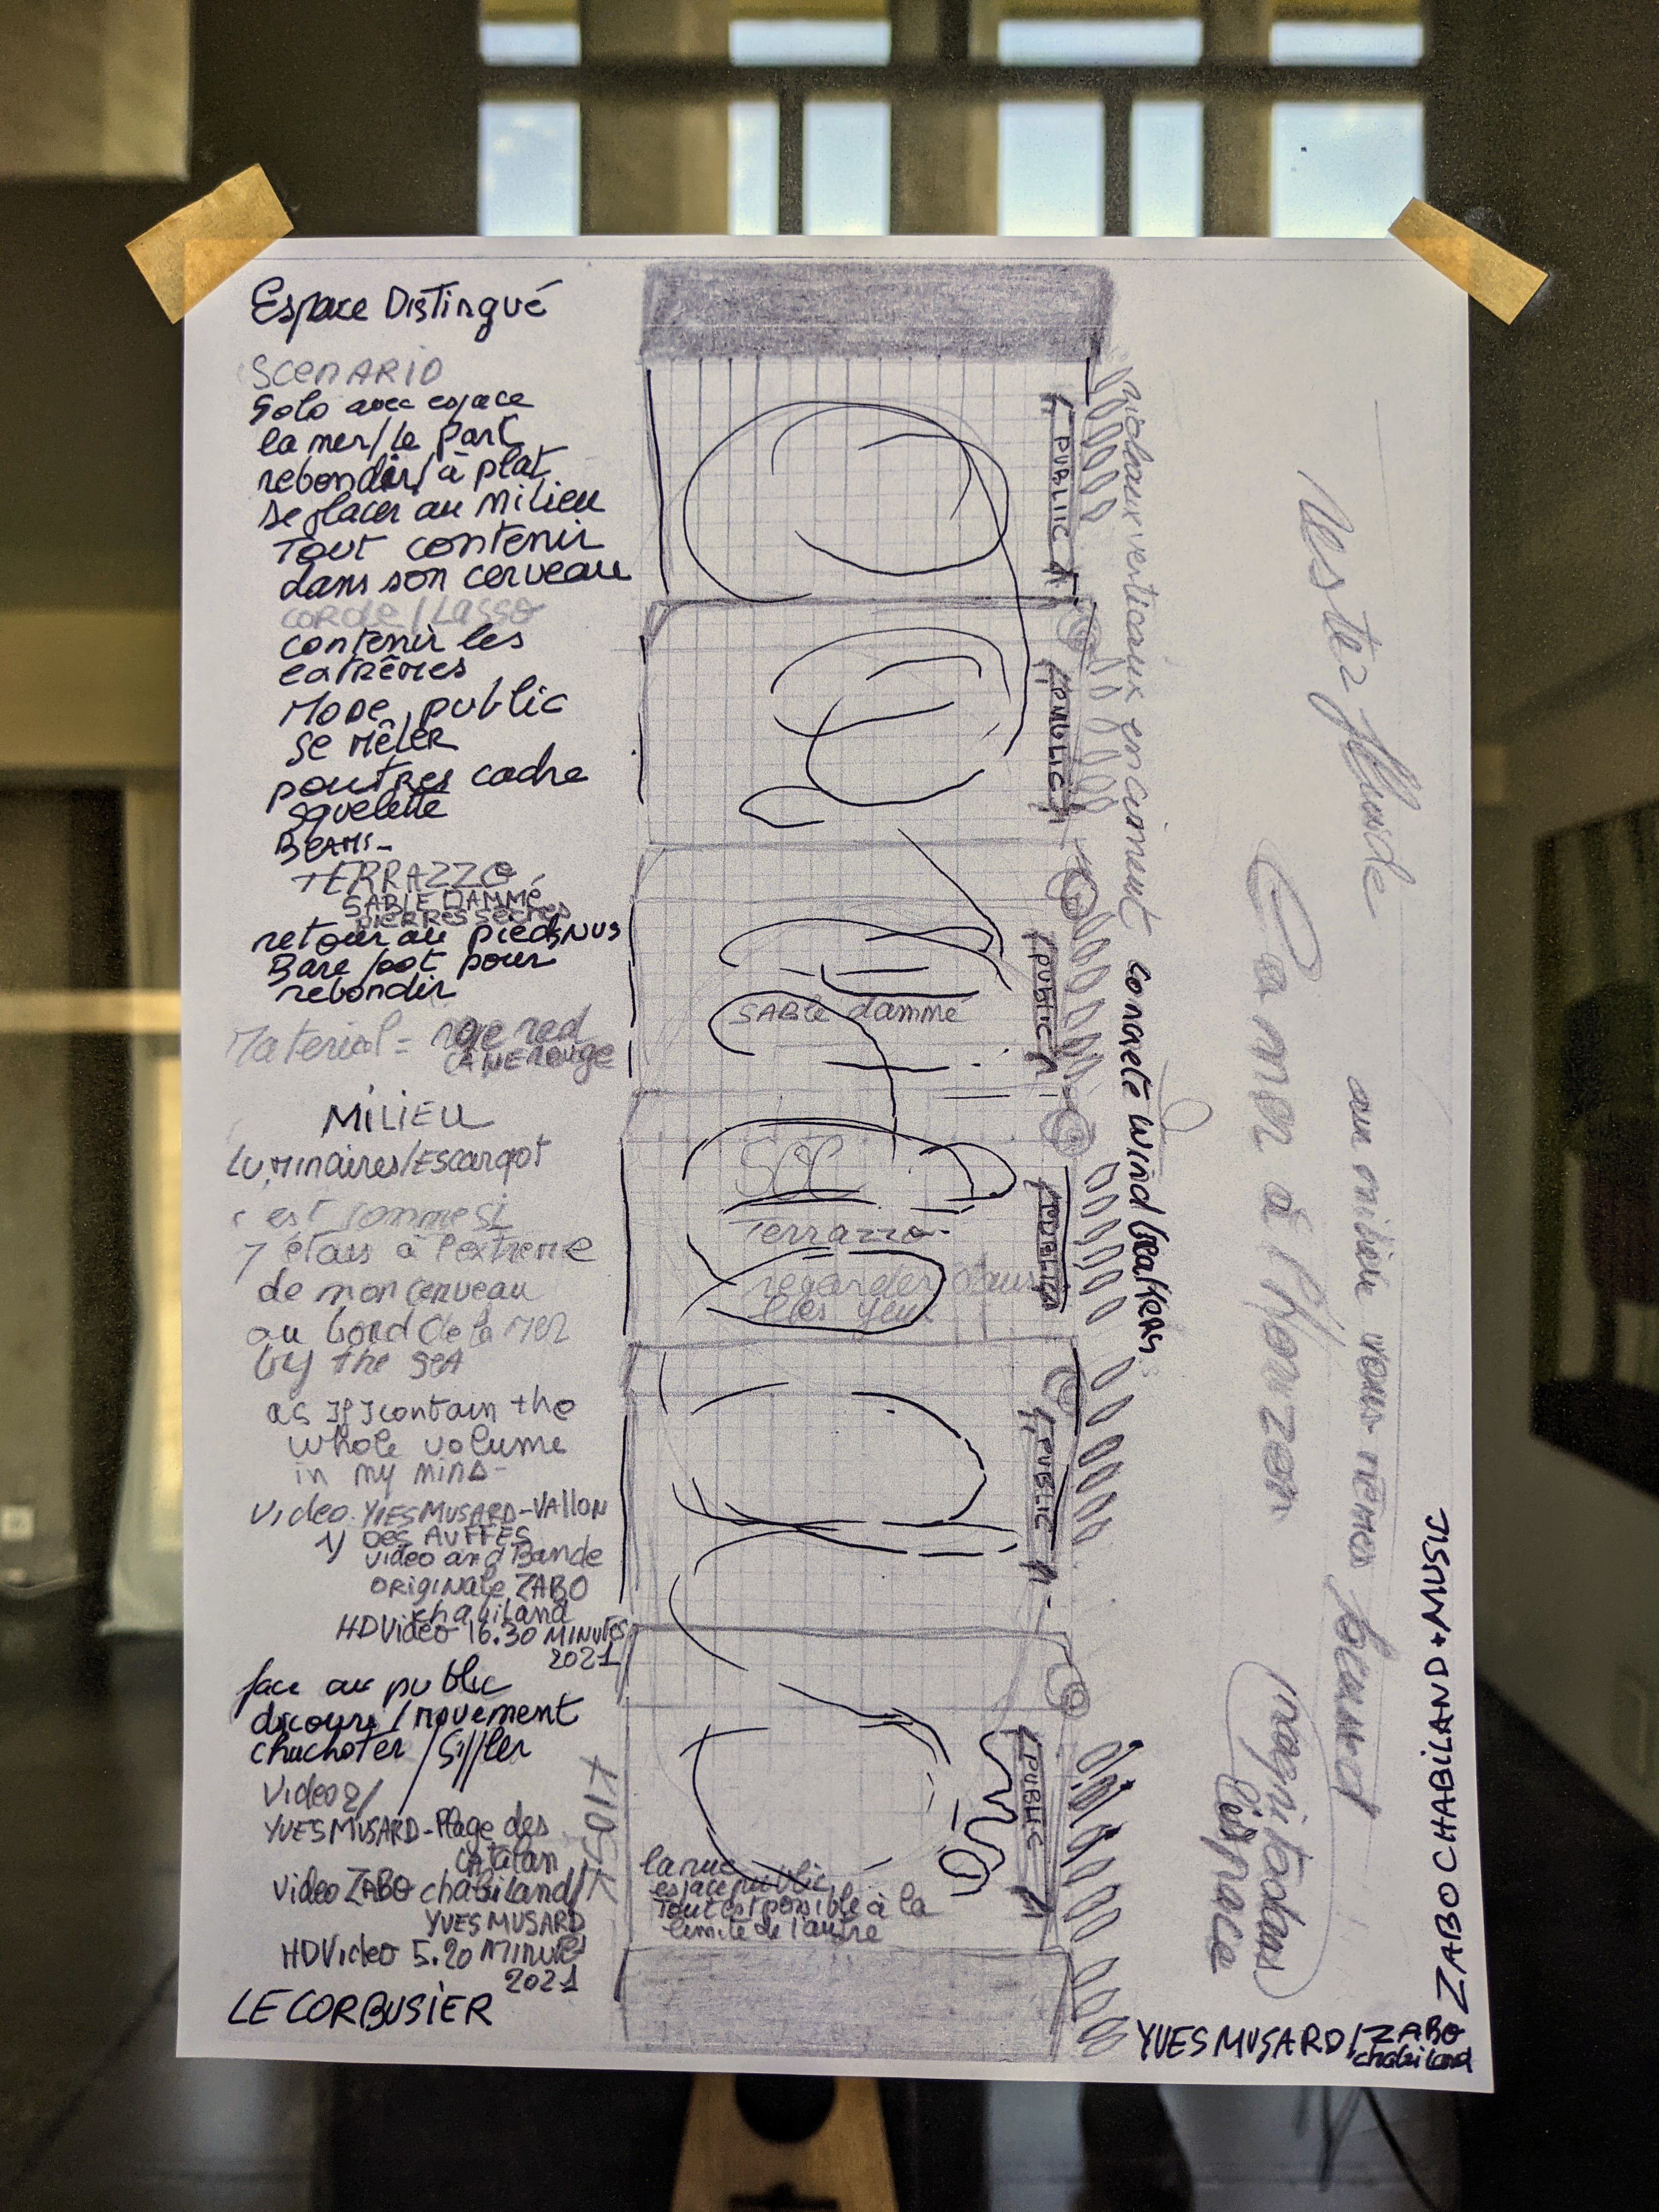 Espace Distingué
SCENARIO
Solo avec espace
la mer/Le Parc
rebondir/à plat
se placer au milieu
Tout contenir
dans son cerveau
corde/Lasso
contenir les
extrêmes
Mode public
se mêler
poutres cadre
squelette
BEAMS-
TERRAZZO
SABLE DAMMÉ
PIERRES SÈCHES
retour au pieds NUS
Bare foot pour
rebondir
Material = rope red
MILIEU
Luminaires/Escargot
c'est comme si
j'étais à l'extreme
de mon cerveau
au bord de la mer
by the sea
as If I contain the
whole volume
in my mind-
Video YVES MUSARD-VALLON
1) DES AUFFES
video and Bande
originale ZABO
chabiland
HD Video 16.30 MINUTES
2021
face au public
discours/movement
chuchoter/Siffler
Video 2/
YVES MUSARD-Plage des
Catalan
Video ZABO chabiland/
YVES MUSARD
HDVideo 5.20 Minutes
2021
LE CORBUSIER
KIOSK
PUBLIC
PUBLIC
PUBLIC
PUBLIC
PUBLIC
PUBLIC
SABLE dammé
SOL
Terrazzo
regarder dans
les yeux
la rue
espace public
Tout est possible à la
limite de l'autre
verticaux en ciment concrete wind beaters
Rester fluide
La mer à l'horizon
au milieu vous-mêmes
espace
YVES MUSARD/ZABO
chabiland
ZABO CHABILAND + MUSIC